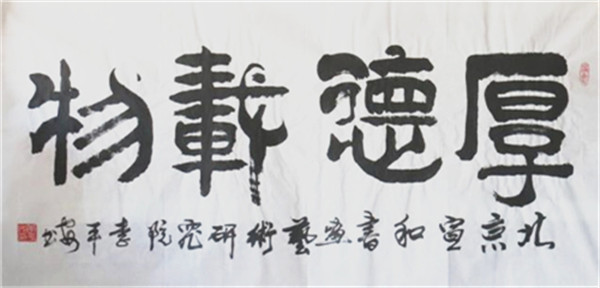 厚德載物
北京宣和書画藝術研究院李平安书